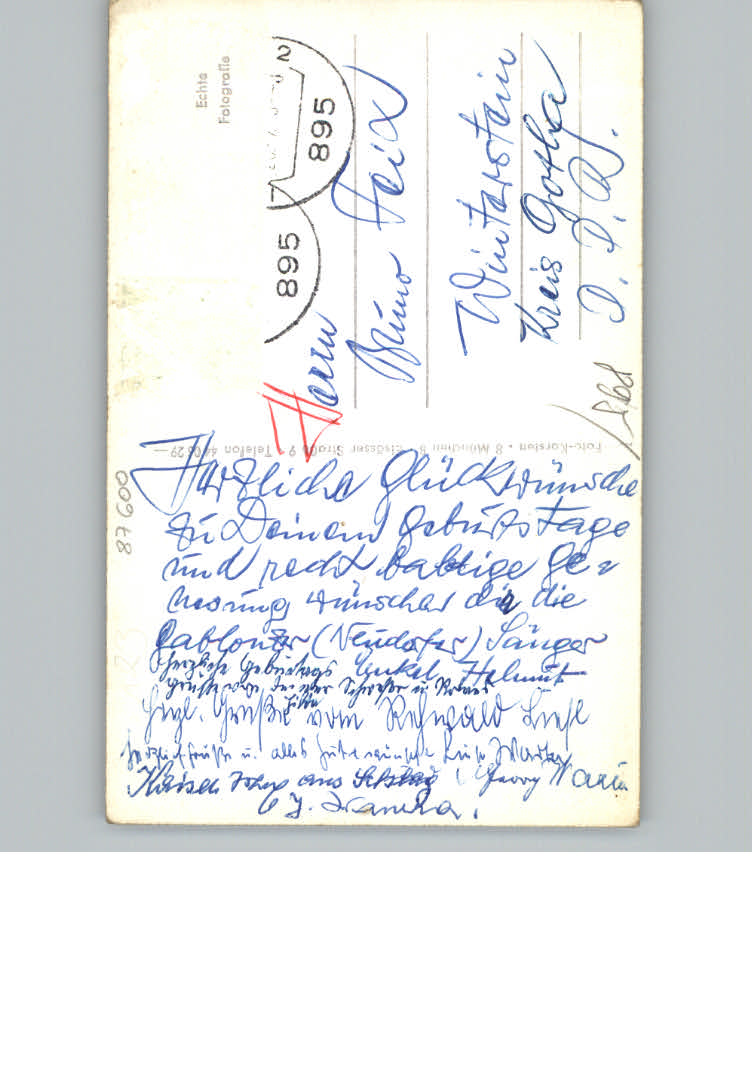 Echte
Fotografie
2
895
895
Herrn
Bruno
Winterstein
Kreis Gotha
D. D. R.
1968
Foto-Karsten • 8 München 8 • Elsässer Straße 9 • Telefon 44 06 29
87600
Herzliche Glückwünsche
zu Deinem Geburtstage
und recht baldige Ge=
nesung wünschen dir die
Gablonzer (Neudorfer) Sänger
Herzliche Geburtags Enkel Helmut
grüße von Deiner Schwester u.
Herzl. Grüße vom Rehwald Liesl
herzlich Grüße u. alles Gute wünscht
Kaiser aus Georg Maria